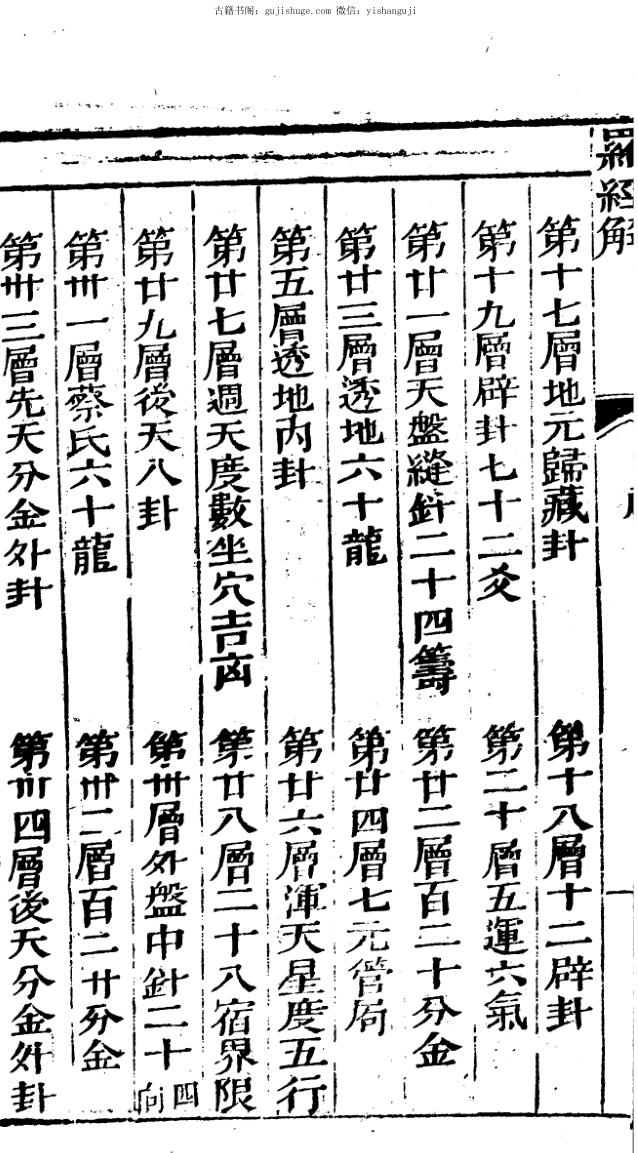 古籍书阁：gujishuge.com 微信：yishanguji
羅經解
第十七層地元歸藏卦
第十八層十二辟卦
第十九層辟卦七十二爻
第二十層五運六氣
第廿一層天盤縫針二十四籌
第廿二層百二十分金
第廿三層透地六十龍
第廿四層七元管局
第五層透地內卦
第廿六層渾天星度五行
第廿七層週天度數坐穴吉凶
第廿八層二十八宿界限
第廿九層後天八卦
第卅層外盤中針二十四向
第卅一層蔡氏六十龍
第卅二層百二廿分金
第卅三層先天分金外卦
第卅四層後天分金外卦